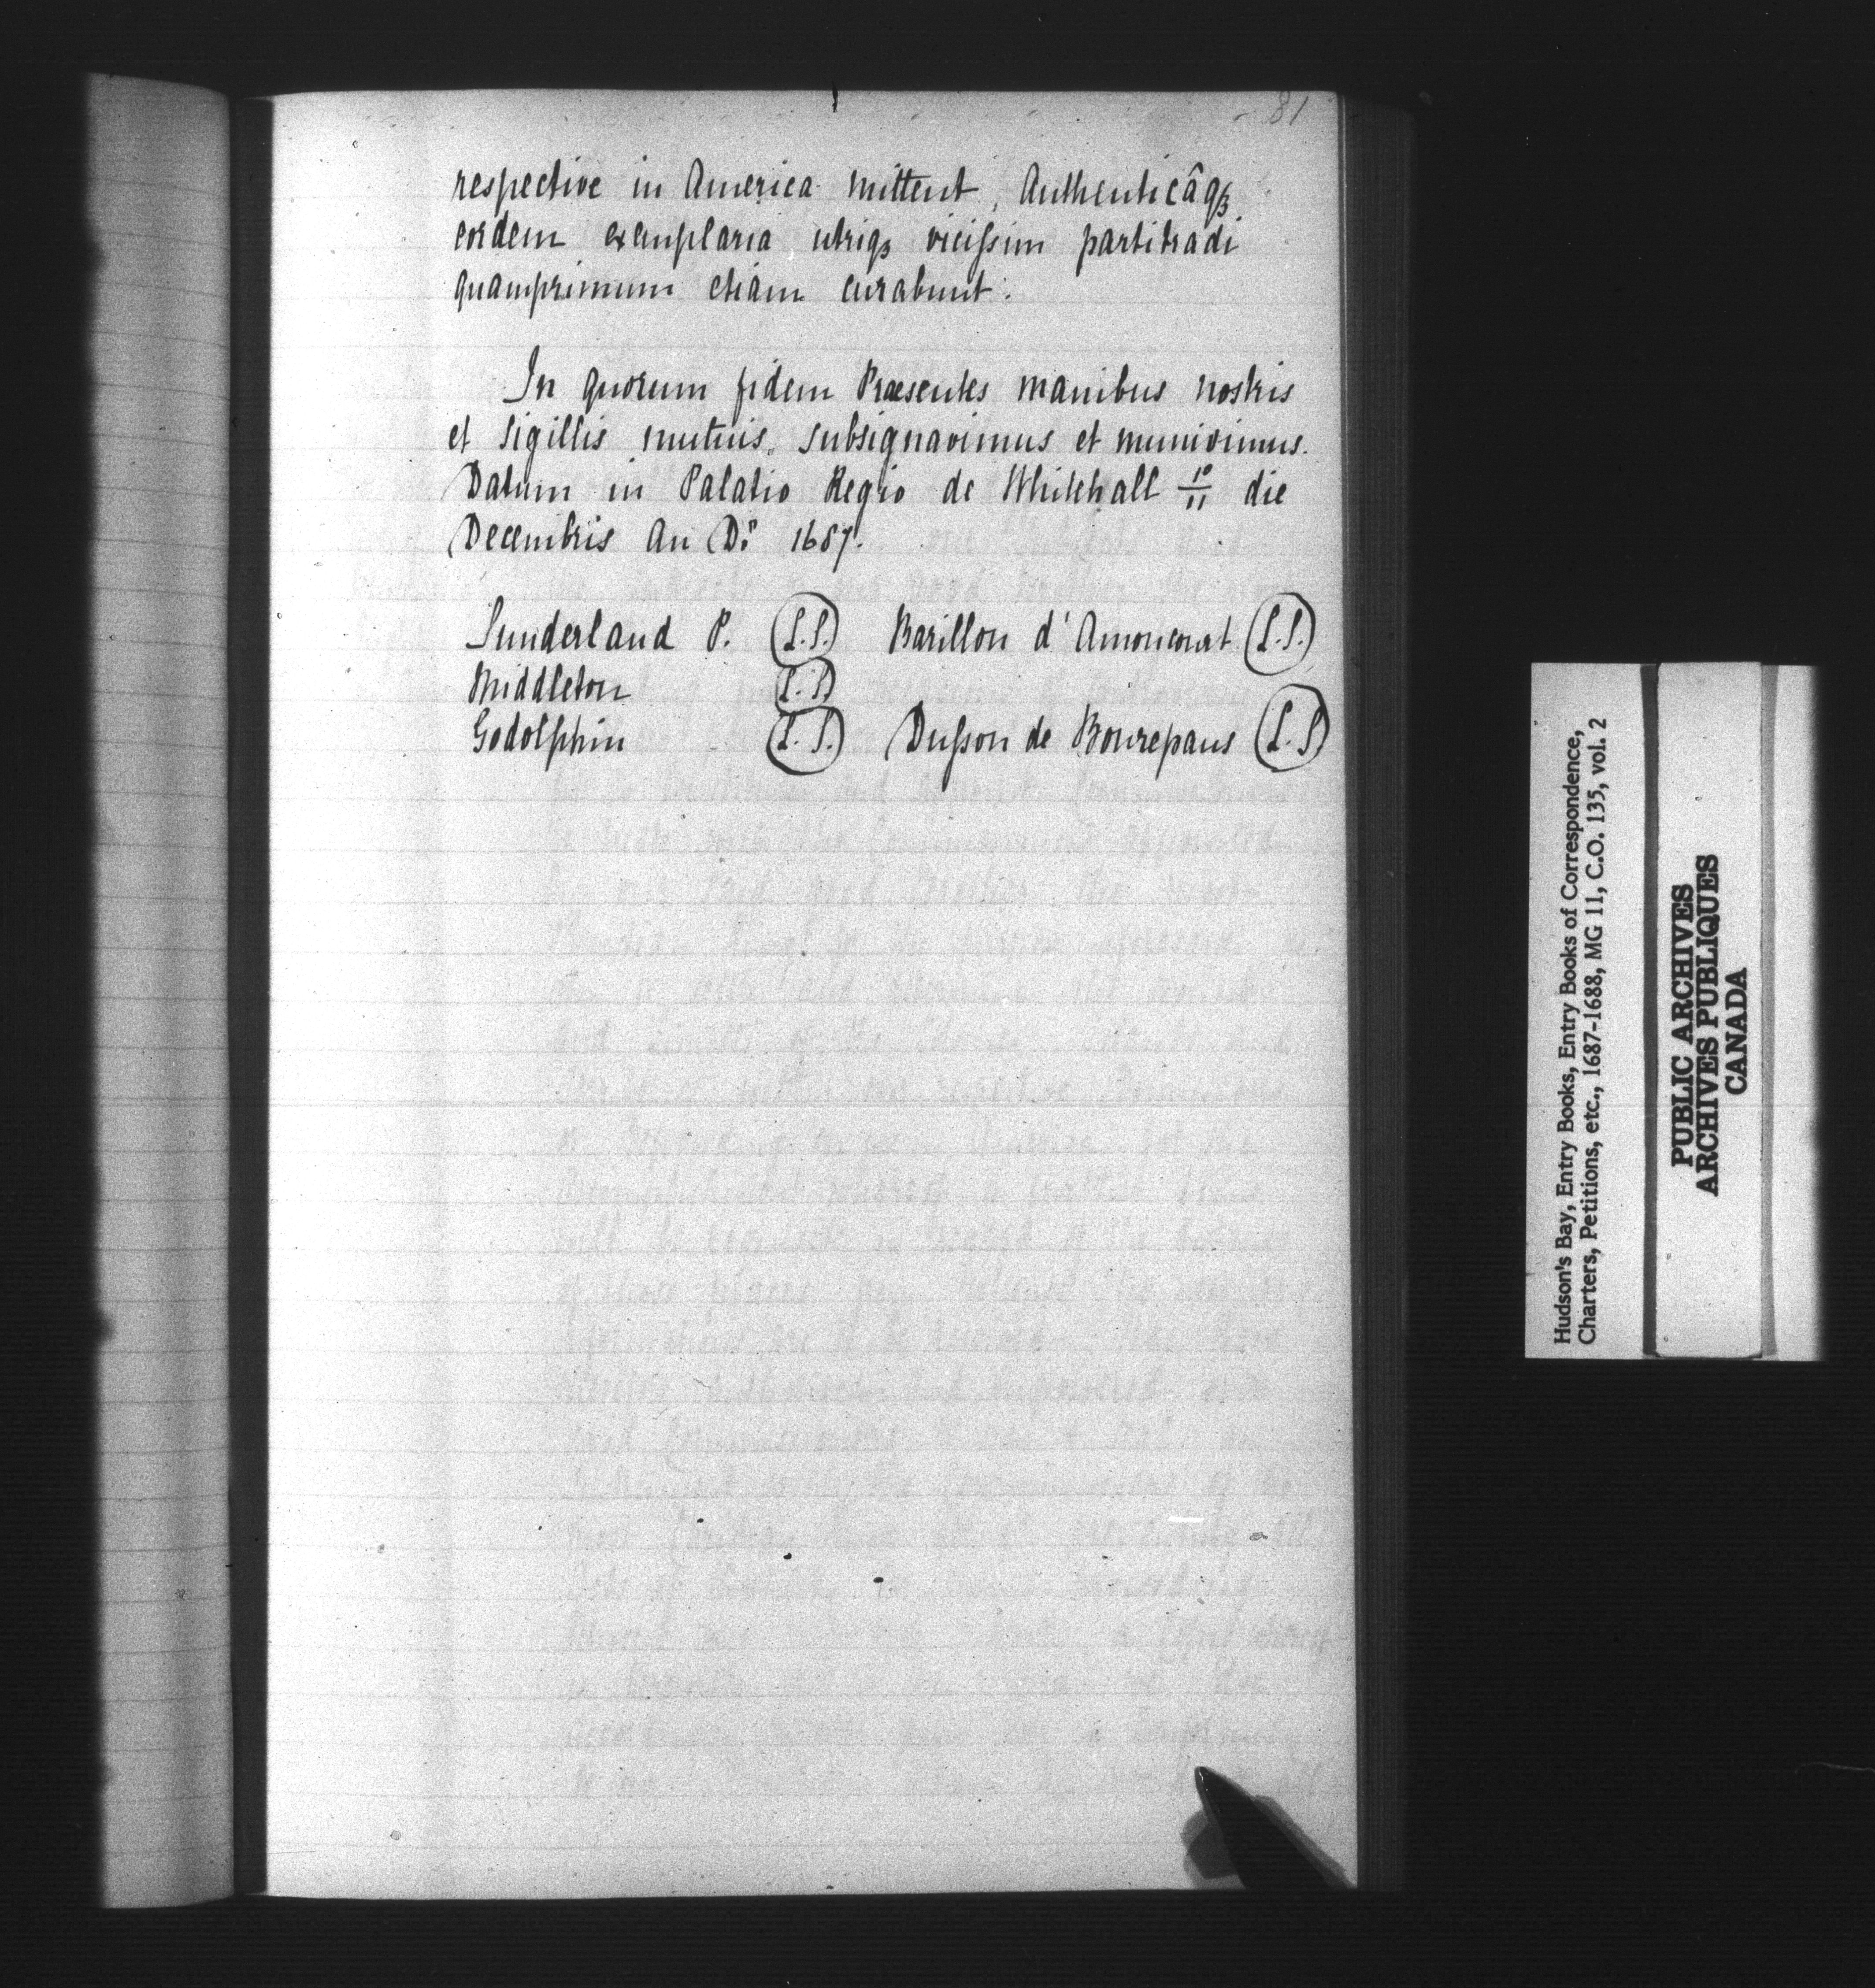 81
respective in America mittent, Authenticâqꝫ
eordem exemplaria utriqꝫ viciſsim partitradi
quamprimum etiam curabunt.
In quorum fidem Præsentes manibus nostris
et Sigillis mutuis subsignavimus et munivimus.
Datum in Palatio Regio de Whitehall 1º/11 die
Decembris An Dⁱ 1687.
Sunderland P. (L.S.) Barillon d'Amoncourt (L.S.)
Middleton (L.S)
Godolphin (L.S.) Duſson de Bonrepaus (L.S)
Hudson's Bay, Entry Books, Entry Books of Correspondence,
Charters, Petitions, etc., 1687-1688, MG 11, C.O. 135, vol. 2
PUBLIC ARCHIVES
ARCHIVES PUBLIQUES
CANADA